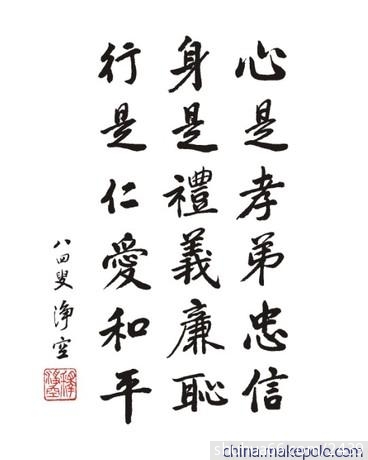 心是孝弟忠信
身是禮義廉恥
行是仁愛和平
八四叟淨空
china.makepolo.com